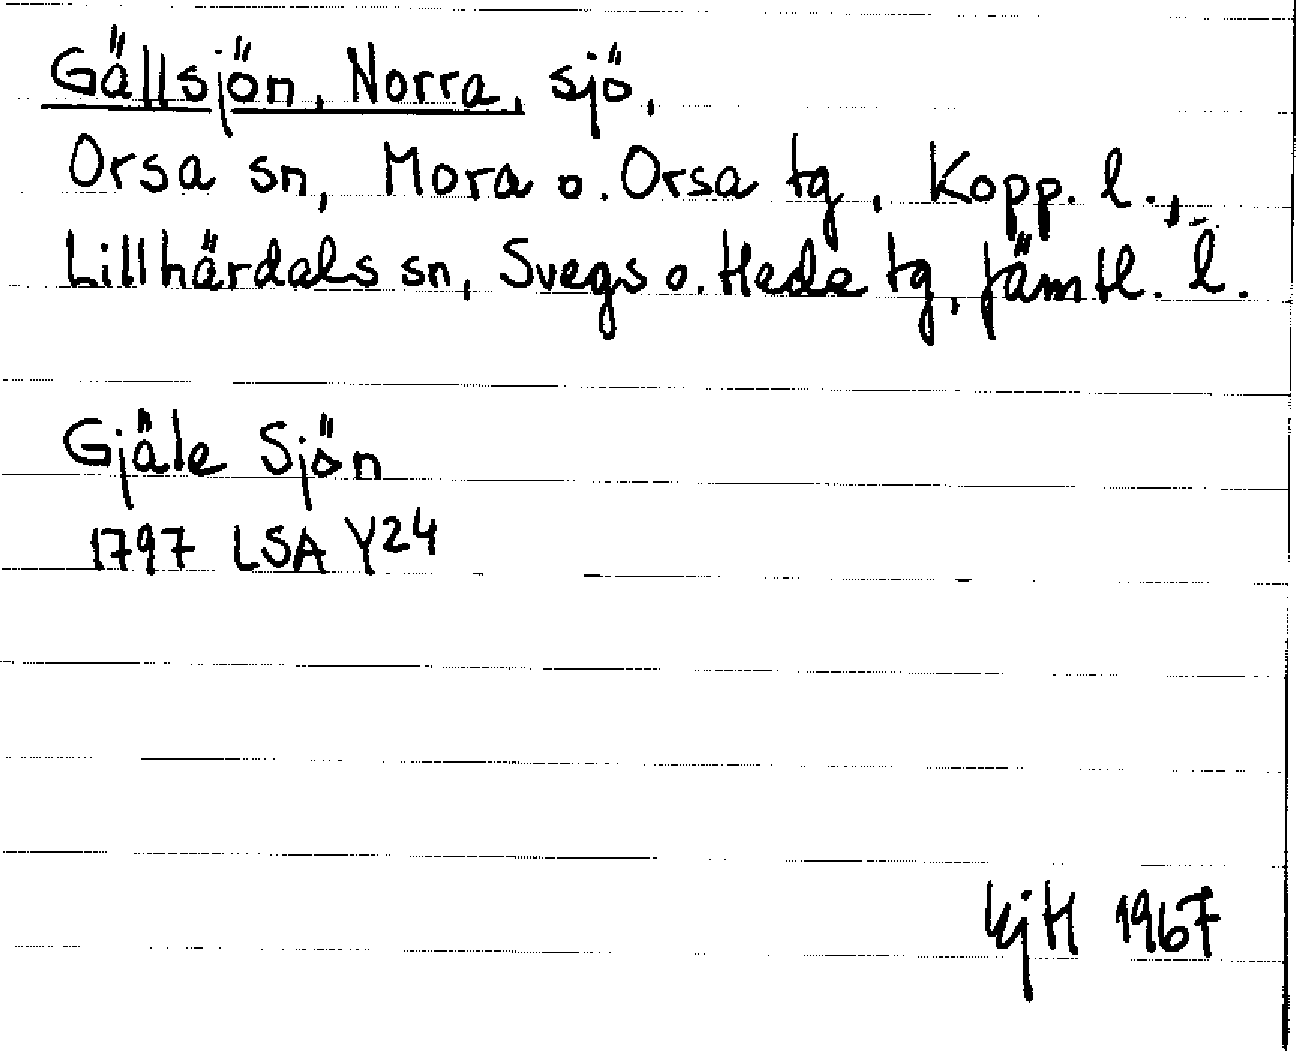 Gällsjön, Norra, sjö,
Orsa sn, Mora o. Orsa tg, Kopp. l.,
Lillhärdals sn, Svegs o. Hede tg, Jämtl. l.
Gjäle Sjön
1797 LSA Y24
KjH 1967